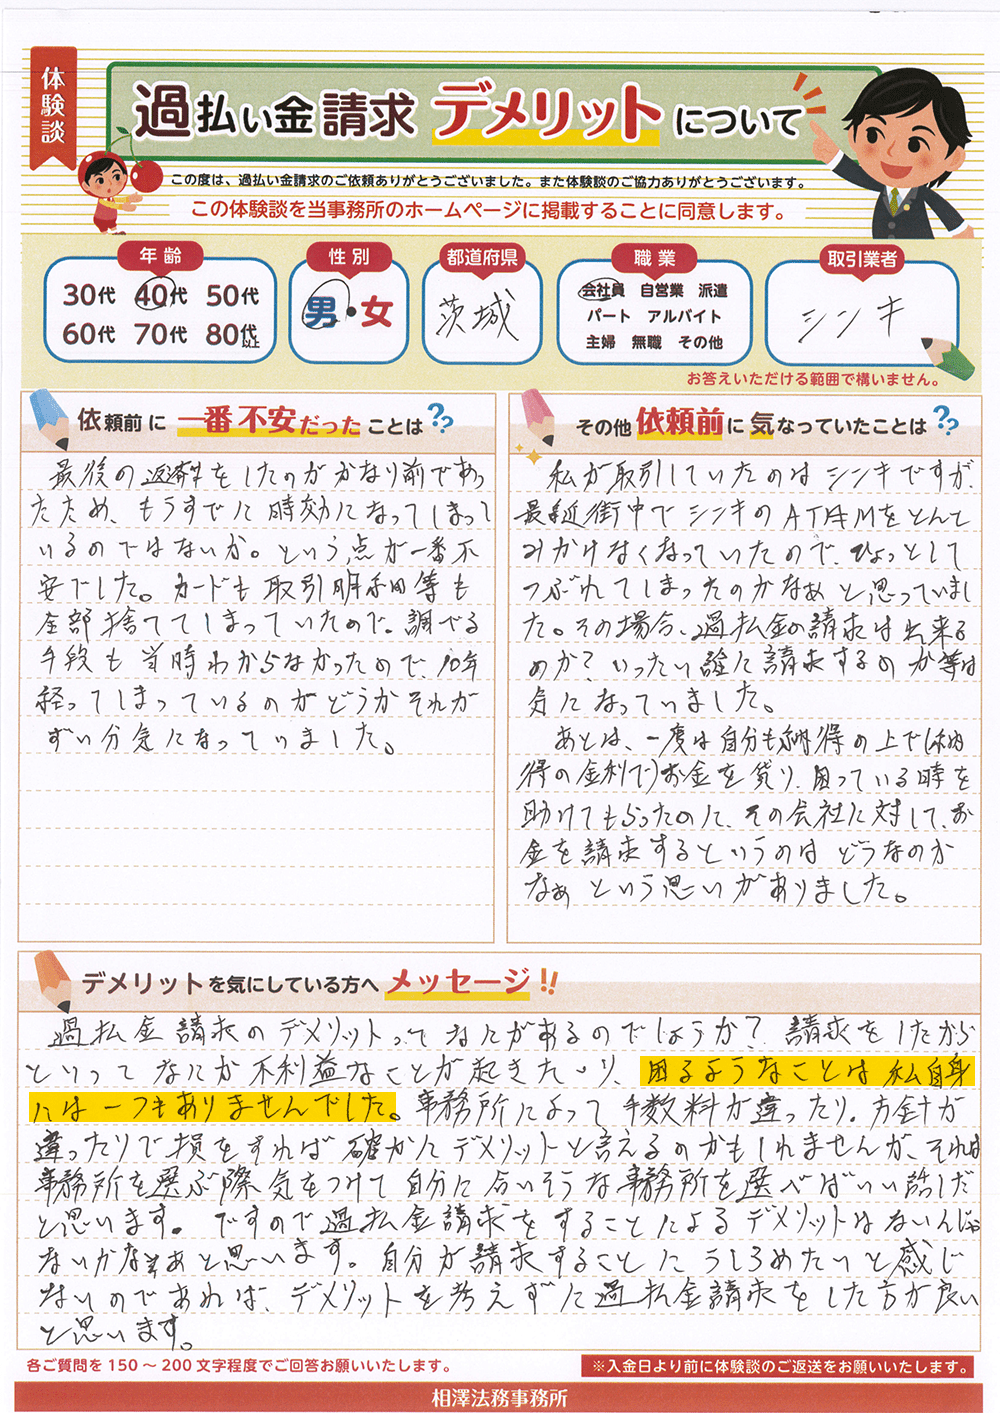 体験談
過払い金請求 デメリットについて
この度は、過払い金請求のご依頼ありがとうございました。また体験談のご協力ありがとうございます。
この体験談を当事務所のホームページに掲載することに同意します。
年齢
30代 40代 50代
60代 70代 80代以上
性別
男・女
都道府県
茨城
職業
会社員 自営業 派遣
パート アルバイト
主婦 無職 その他
取引業者
シンキ
お答えいただける範囲で構いません。
依頼前に一番不安だったことは??
最後の返済をしたのがかなり前であっ
たため、もうすでに時効になってしまって
いるのではないか。という点が一番不
安でした。カードも取引明細等も
全部捨ててしまっていたので、調べる
手段も当時わからなかったので、10年
経ってしまっているのがどうかそれが
ずい分気になっていました。
その他依頼前に気なっていたことは??
私が取引していたのはシンキですが、
最近街中でシンキのATMをとんと
みかけなくなっていたので、ひょっとして
つぶれてしまったのかなぁと思っていまし
た。その場合、過払金の請求は出来る
のか?いったい誰に請求するのか等は
気になっていました。
あとは、一度は自分も納得の上で(納
得の金利で)お金を貸り、困っている時を
助けてもらったのに、その会社に対して、お
金を請求するというのはどうなのか
なぁという思いがありました。
デメリットを気にしている方へメッセージ!!
過払金請求のデメリットってなにがあるのでしょうか?請求をしたから
といってなにか不利益なことが起きたり、困るようなことは私自身
には一つもありませんでした。事務所によって手数料が違ったり、方針が
違ったりで損をすれば確かにデメリットと言えるのかもしれませんが、それは
事務所を選ぶ際気をつけて自分に合いそうな事務所を選べばいい話しだ
と思います。ですので過払金請求をすることによるデメリットはないんじゃ
ないかなぁと思います。自分が請求することにうしろめたいと感じ
ないのであれば、デメリットを考えずに過払金請求をした方が良い
と思います。
各ご質問を150～200文字程度でご回答お願いいたします。
※入金日より前に体験談のご返送をお願いいたします。
相澤法務事務所